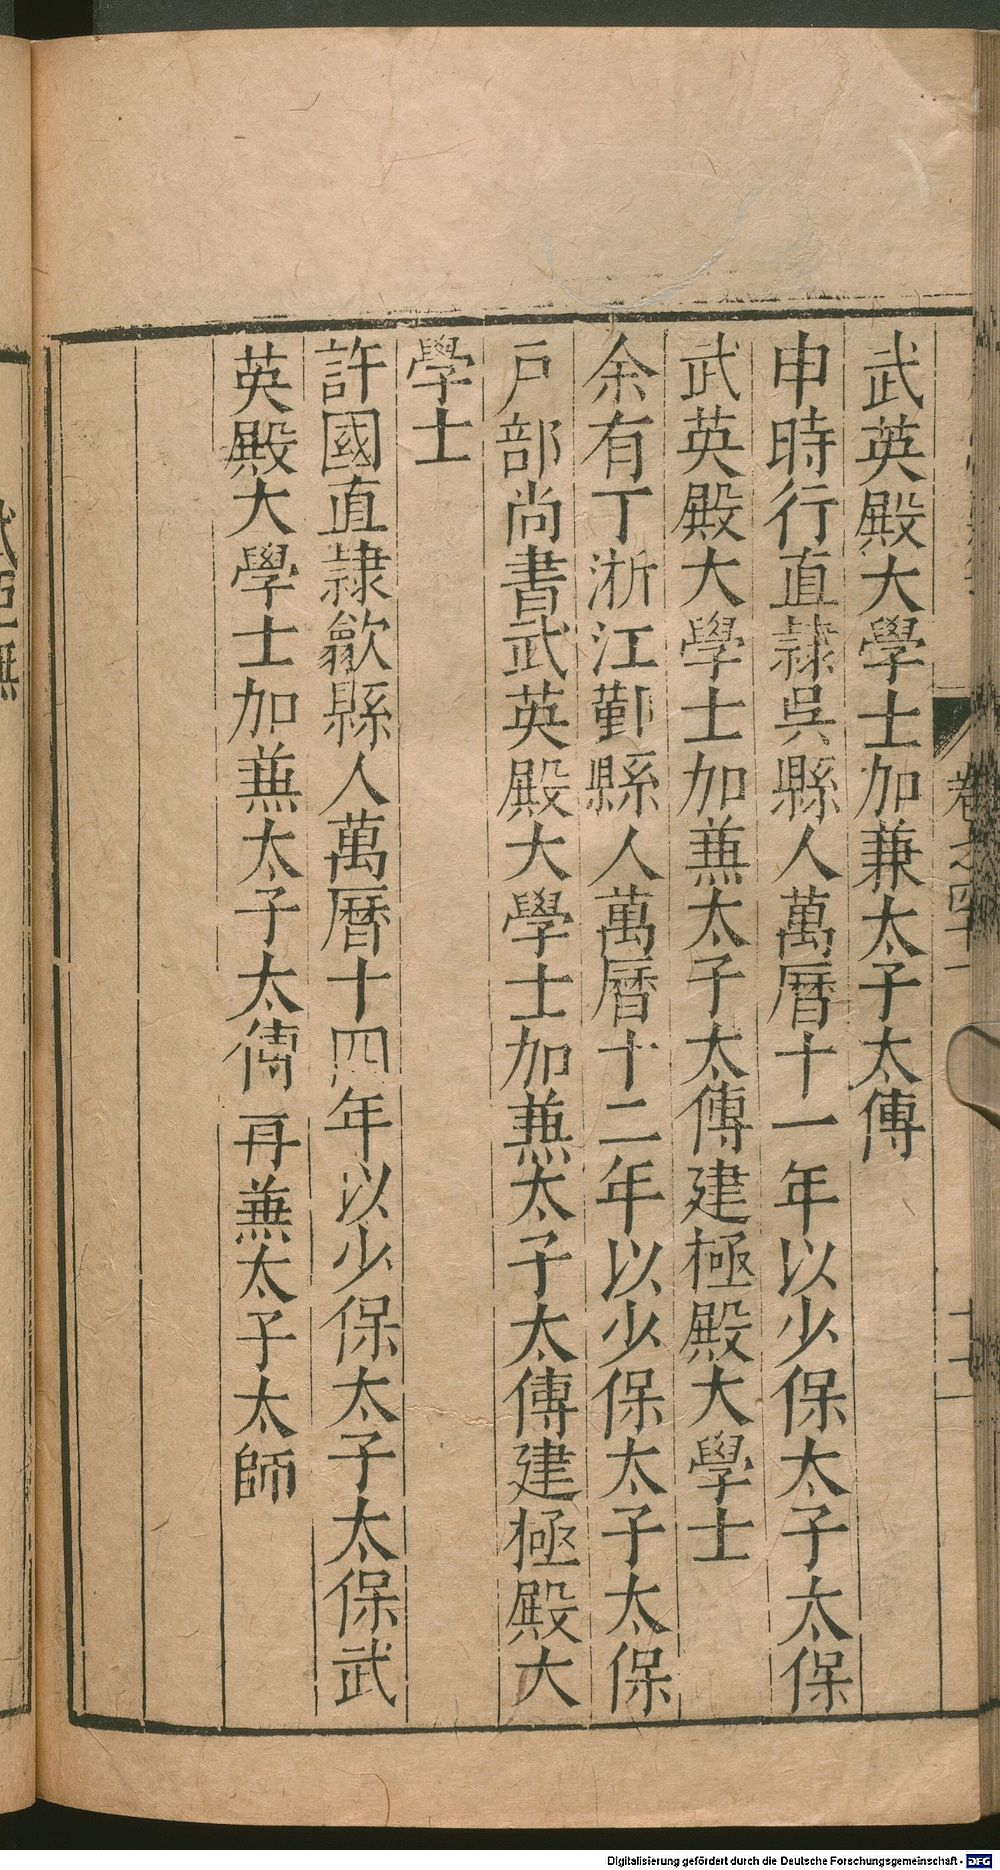 武英殿大學士加兼太子太傅
申時行直隷吳縣人萬曆十一年以少保太子太保
武英殿大學士加兼太子太傅建極殿大學士
余有丁浙江鄞縣人萬曆十二年以少保太子太保
戸部尚書武英殿大學士加兼太子太傅建極殿大
學士
許國直隷歙縣人萬曆十四年以少保太子太保武
英殿大學士加兼太子太傅再兼太子太師
卷之四十一
十七
Digitalisierung gefördert durch die Deutsche Forschungsgemeinschaft - DFG